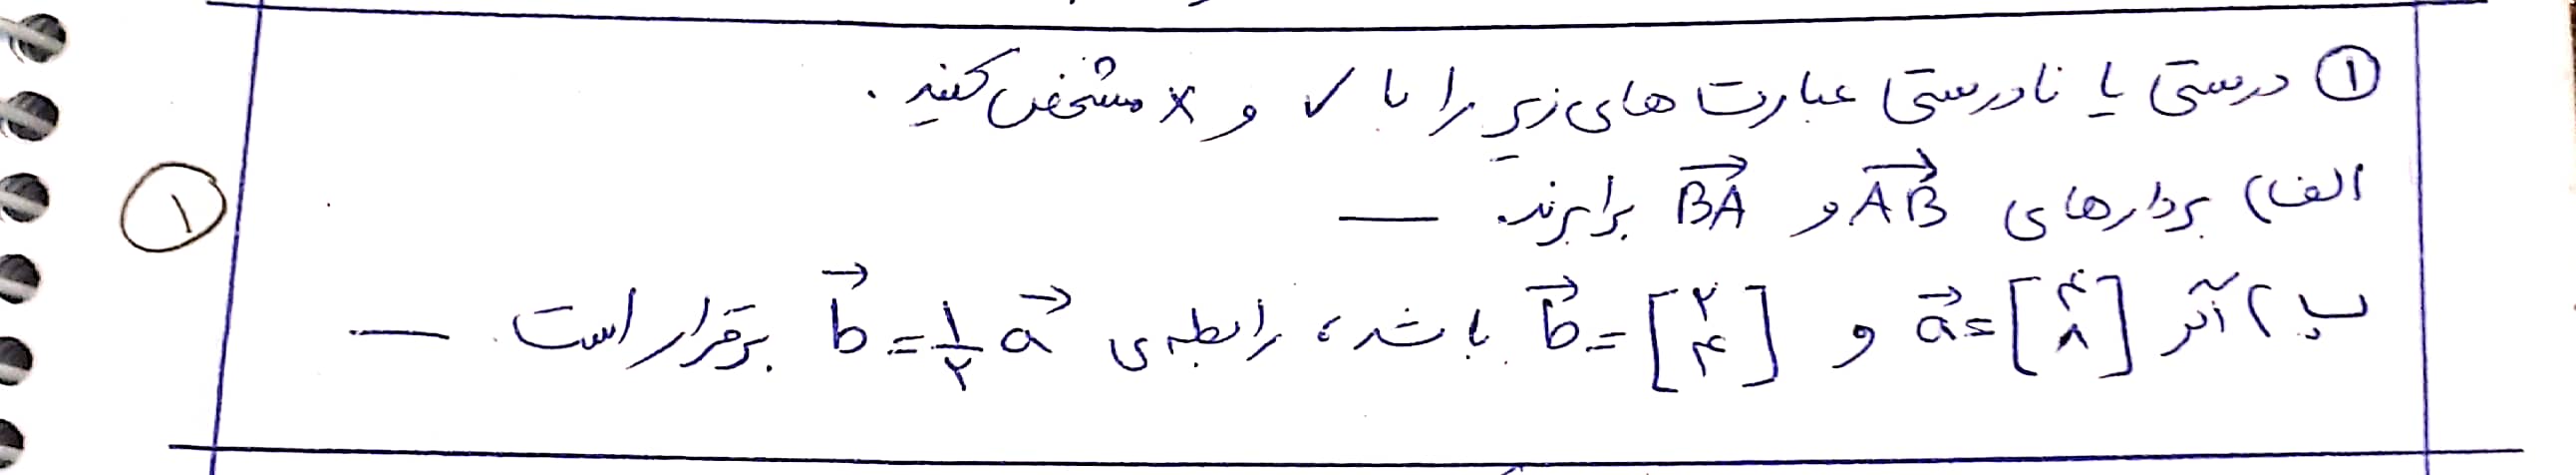 ① درستی یا نادرستی عبارت های زیر را با ✓ و × مشخص کنید.
الف) بردارهای AB و BA برابرند. —
ب) اگر a = [۴ ۸] و b = [۲ ۴] باشد، رابطه ی b = ۱/۲ a برقرار است. —
۱